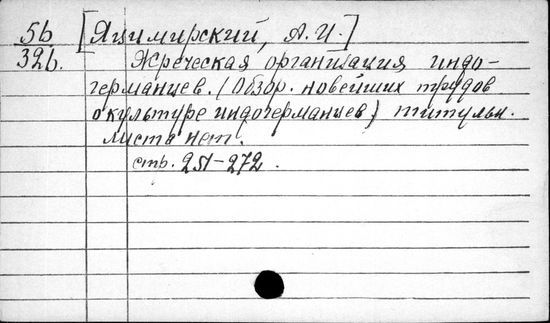 5б [Яцимирский, А.И.]
32б. Жреческая организация индо-
германцев. (Обзор. новейших трудов
о культуре индогерманцев) титульн.
листа нет.
стр. 251-272.